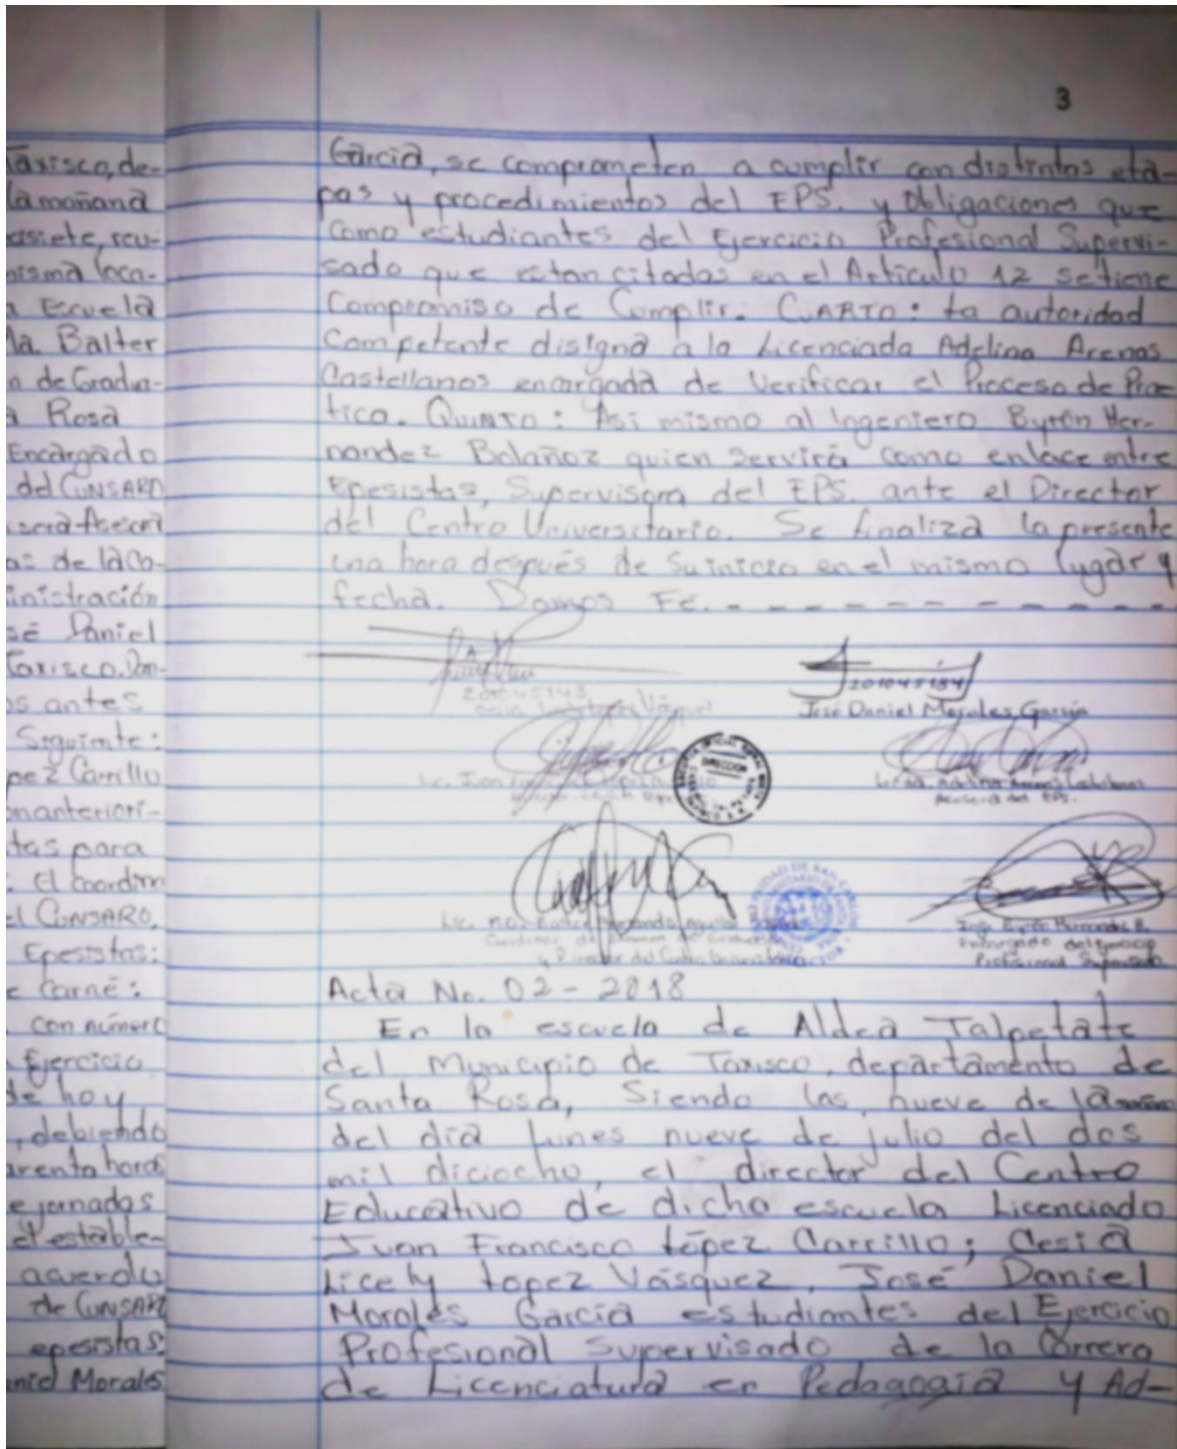 3
Taxisco, de-
la mañana
asiete, reu-
misma loca-
a Escuela
la. Balter
n de Gradua-
a Rosa
Encargado
del CUNSARO
será Asesora
as de la Ca-
inistración
sé Daniel
Taxisco. Don-
os antes
Siguiente:
pez Carrillo
on anteriori-
tas para
: El coordina
el CUNSARO,
Epesistas:
e Carné:
con número
Ejercicio
de hoy
, debiendo
arenta horas
e jornadas
el estable-
acuerdo
de CUNSARO
epesistas:
aniel Morales
García, se comprometen a cumplir con distintas eta-
pas y procedimientos del EPS. y Obligaciones que
como estudiantes del Ejercicio Profesional Supervi-
sado que estan citadas en el Articulo 12 se tiene
Compromiso de Cumplir. CUARTO: La autoridad
Competente disigna a la Licenciada Adelina Arenas
Castellanos encargada de Verificar el Proceso de Prac
tica. QUINTO: Asi mismo al Ingeniero Byron Her-
nandez Bolañoz quien Servirá como enlace entre
Epesistas, Supervisora del EPS. ante el Director
del Centro Universitario. Se finaliza la presente
una hora después de Su inicio en el mismo lugar y
fecha. Damos Fé. - - - - - - - - - - - - -
201045143 201045184
Vásquez José Daniel Morales García
DIRECCION
Lic. Juan Licda. Adelina Arenas Castellanos
Asesora del EPS.
Lic. M.A. Balter Ing. Byron Hernandez B.
Coordinador de Examen de Encargado del Ejercicio
y Director del Centro Universitario Profesional Supervisado
Acta No. 02 - 2018
En la escuela de Aldea Talpetate
del Municipio de Taxisco, departamento de
Santa Rosa, Siendo las nueve de la
del día lunes nueve de julio del dos
mil diciocho, el director del Centro
Educativo de dicha escuela Licenciado
Juan Francisco López Carrillo; Cesia
Licely Lopez Vásquez, José Daniel
Morales García estudiantes del Ejercicio
Profesional Supervisado de la Carrera
de Licenciatura en Pedagogía y Ad-